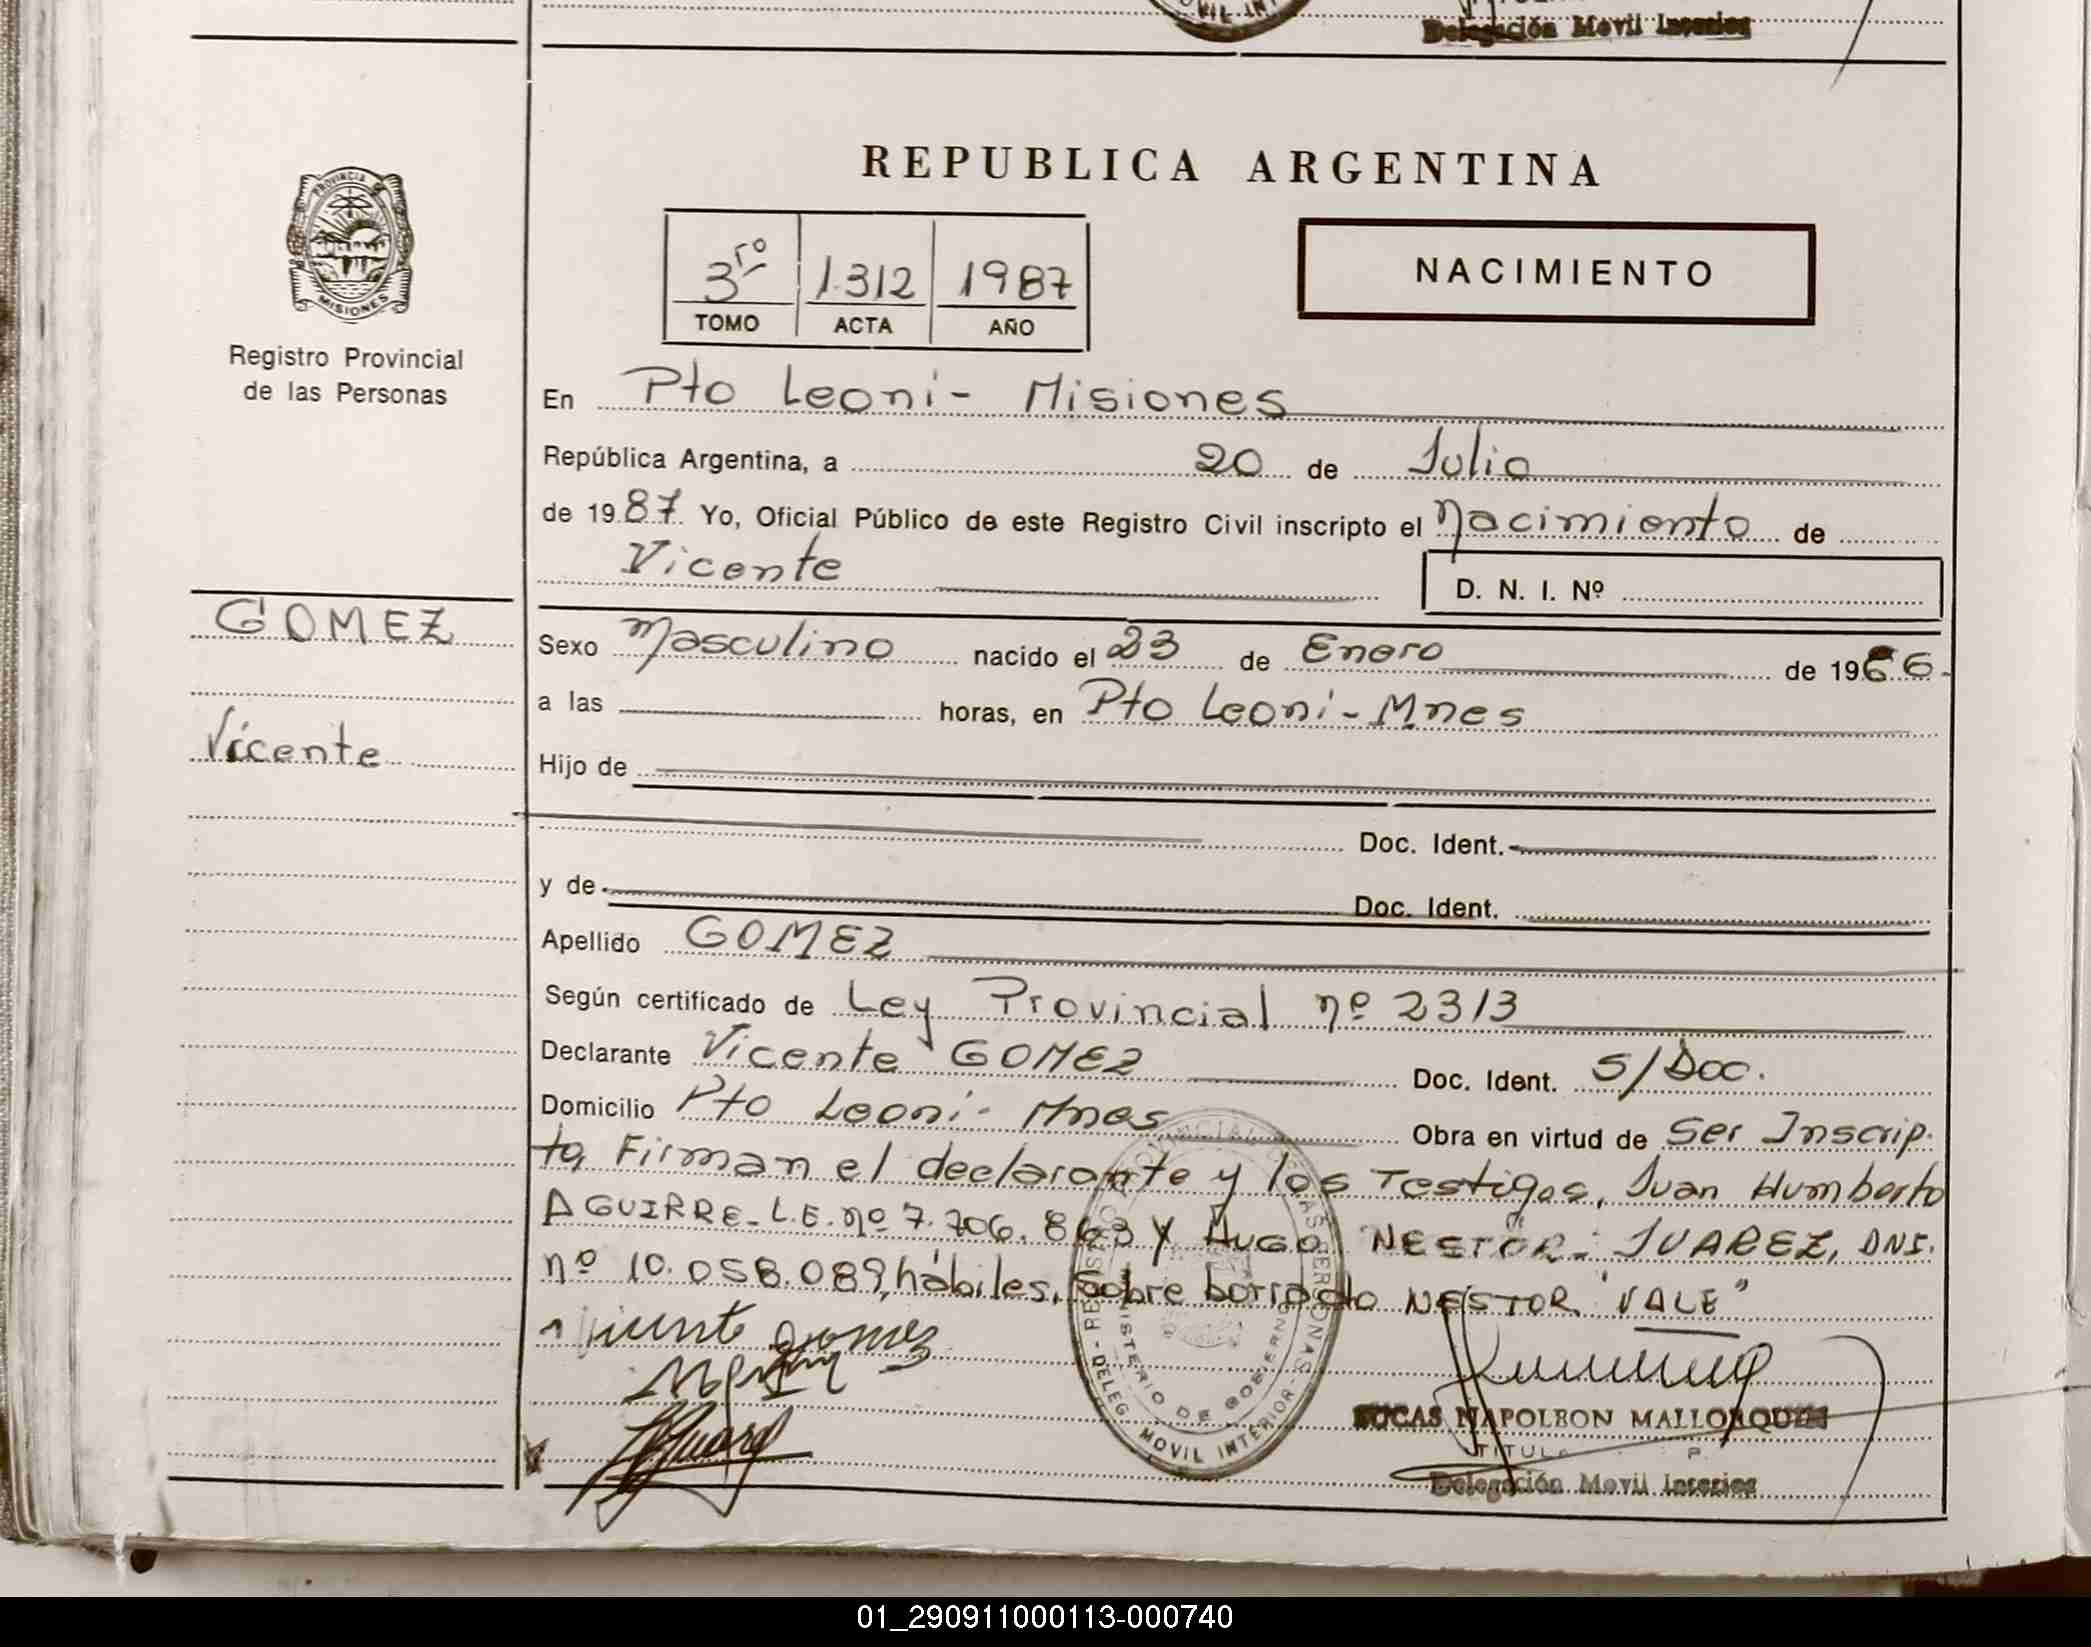 Delegación Movil Interior
REPUBLICA ARGENTINA
PROVINCIA DE
MISIONES
Registro Provincial
de las Personas
3ro 1312 1987
TOMO ACTA AÑO
NACIMIENTO
En Pto Leoni - Misiones
República Argentina, a 20 de Julio
de 1987 Yo, Oficial Público de este Registro Civil inscripto el Nacimiento de
Vicente
D. N. I. Nº
GOMEZ
Vicente
Sexo Masculino nacido el 23 de Enero de 1966-
a las horas, en Pto Leoni - Mnes
Hijo de
Doc. Ident.
y de Doc. Ident.
Apellido GOMEZ
Según certificado de Ley Provincial nº 2313
Declarante Vicente GOMEZ Doc. Ident. S/Doc.
Domicilio Pto Leoni - Mnes Obra en virtud de Ser Inscrip.
to, Firman el declarante y los Testigos, Juan Humberto
AGUIRRE - L.E. nº 7.706.863 Y HUGO NESTOR - JUAREZ, DNI.
nº 10.058.089, hábiles. Sobre borrado NESTOR "VALE"
Vicente gomez
REGISTRO PROVINCIAL DE LAS PERSONAS
MINISTERIO DE GOBIERNO
- DELEG MOVIL INTERIOR -
LUCAS NAPOLEON MALLORQUIN
Delegación Movil Interior
01_290911000113-000740